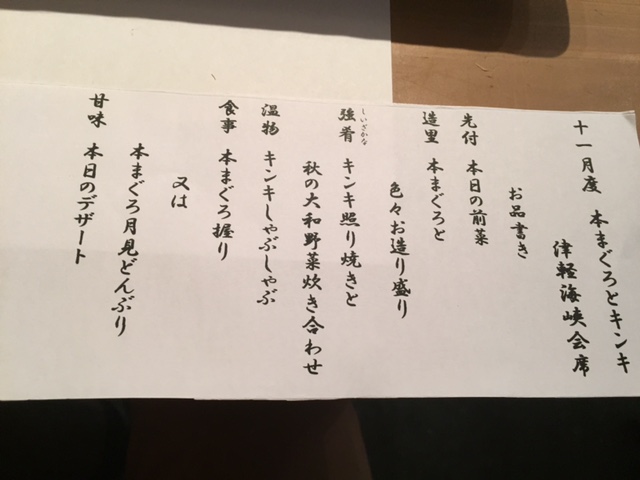 十一月度 本まぐろとキンキ
津軽海峡会席
お品書き
先付 本日の前菜
造里 本まぐろと
色々お造り盛り
強肴 キンキ照り焼きと
しいざかな
秋の大和野菜炊き合わせ
温物 キンキしゃぶしゃぶ
食事 本まぐろ握り
又は
本まぐろ月見どんぶり
甘味 本日のデザート